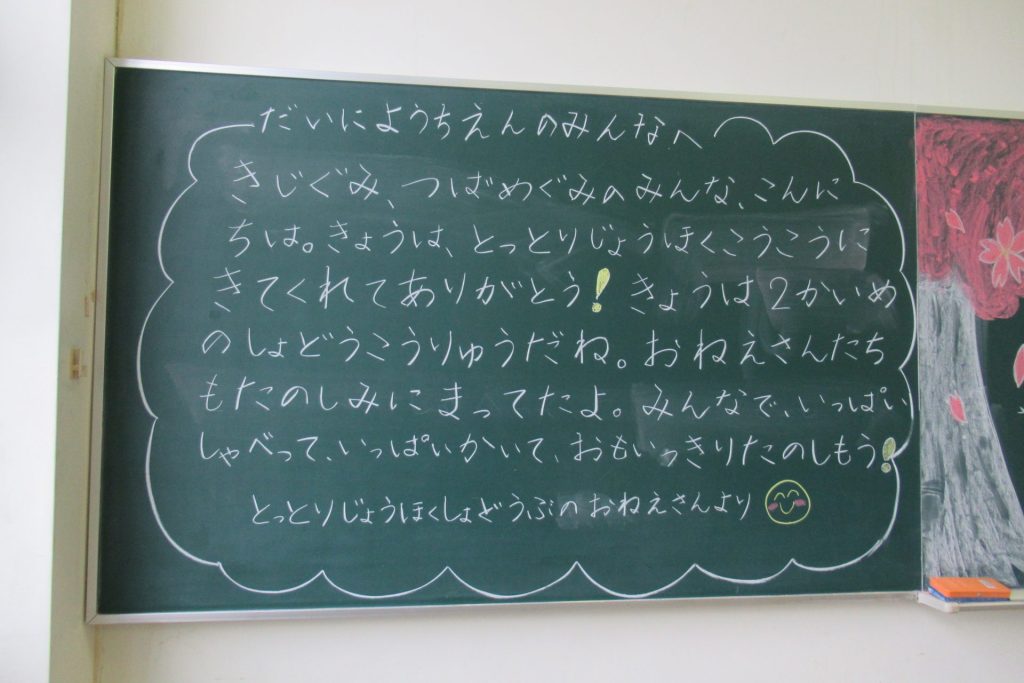 だいにようちえんのみんなへ
きじぐみ、つばめぐみのみんな、こんに
ちは。きょうは、とっとりじょうほくこうこうに
きてくれてありがとう！きょうは2かいめ
のしょどうこうりゅうだね。おねえさんたち
もたのしみにまってたよ。みんなで、いっぱい
しゃべって、いっぱいかいて、おもいっきりたのしもう！
とっとりじょうほくしょどうぶのおねえさんより